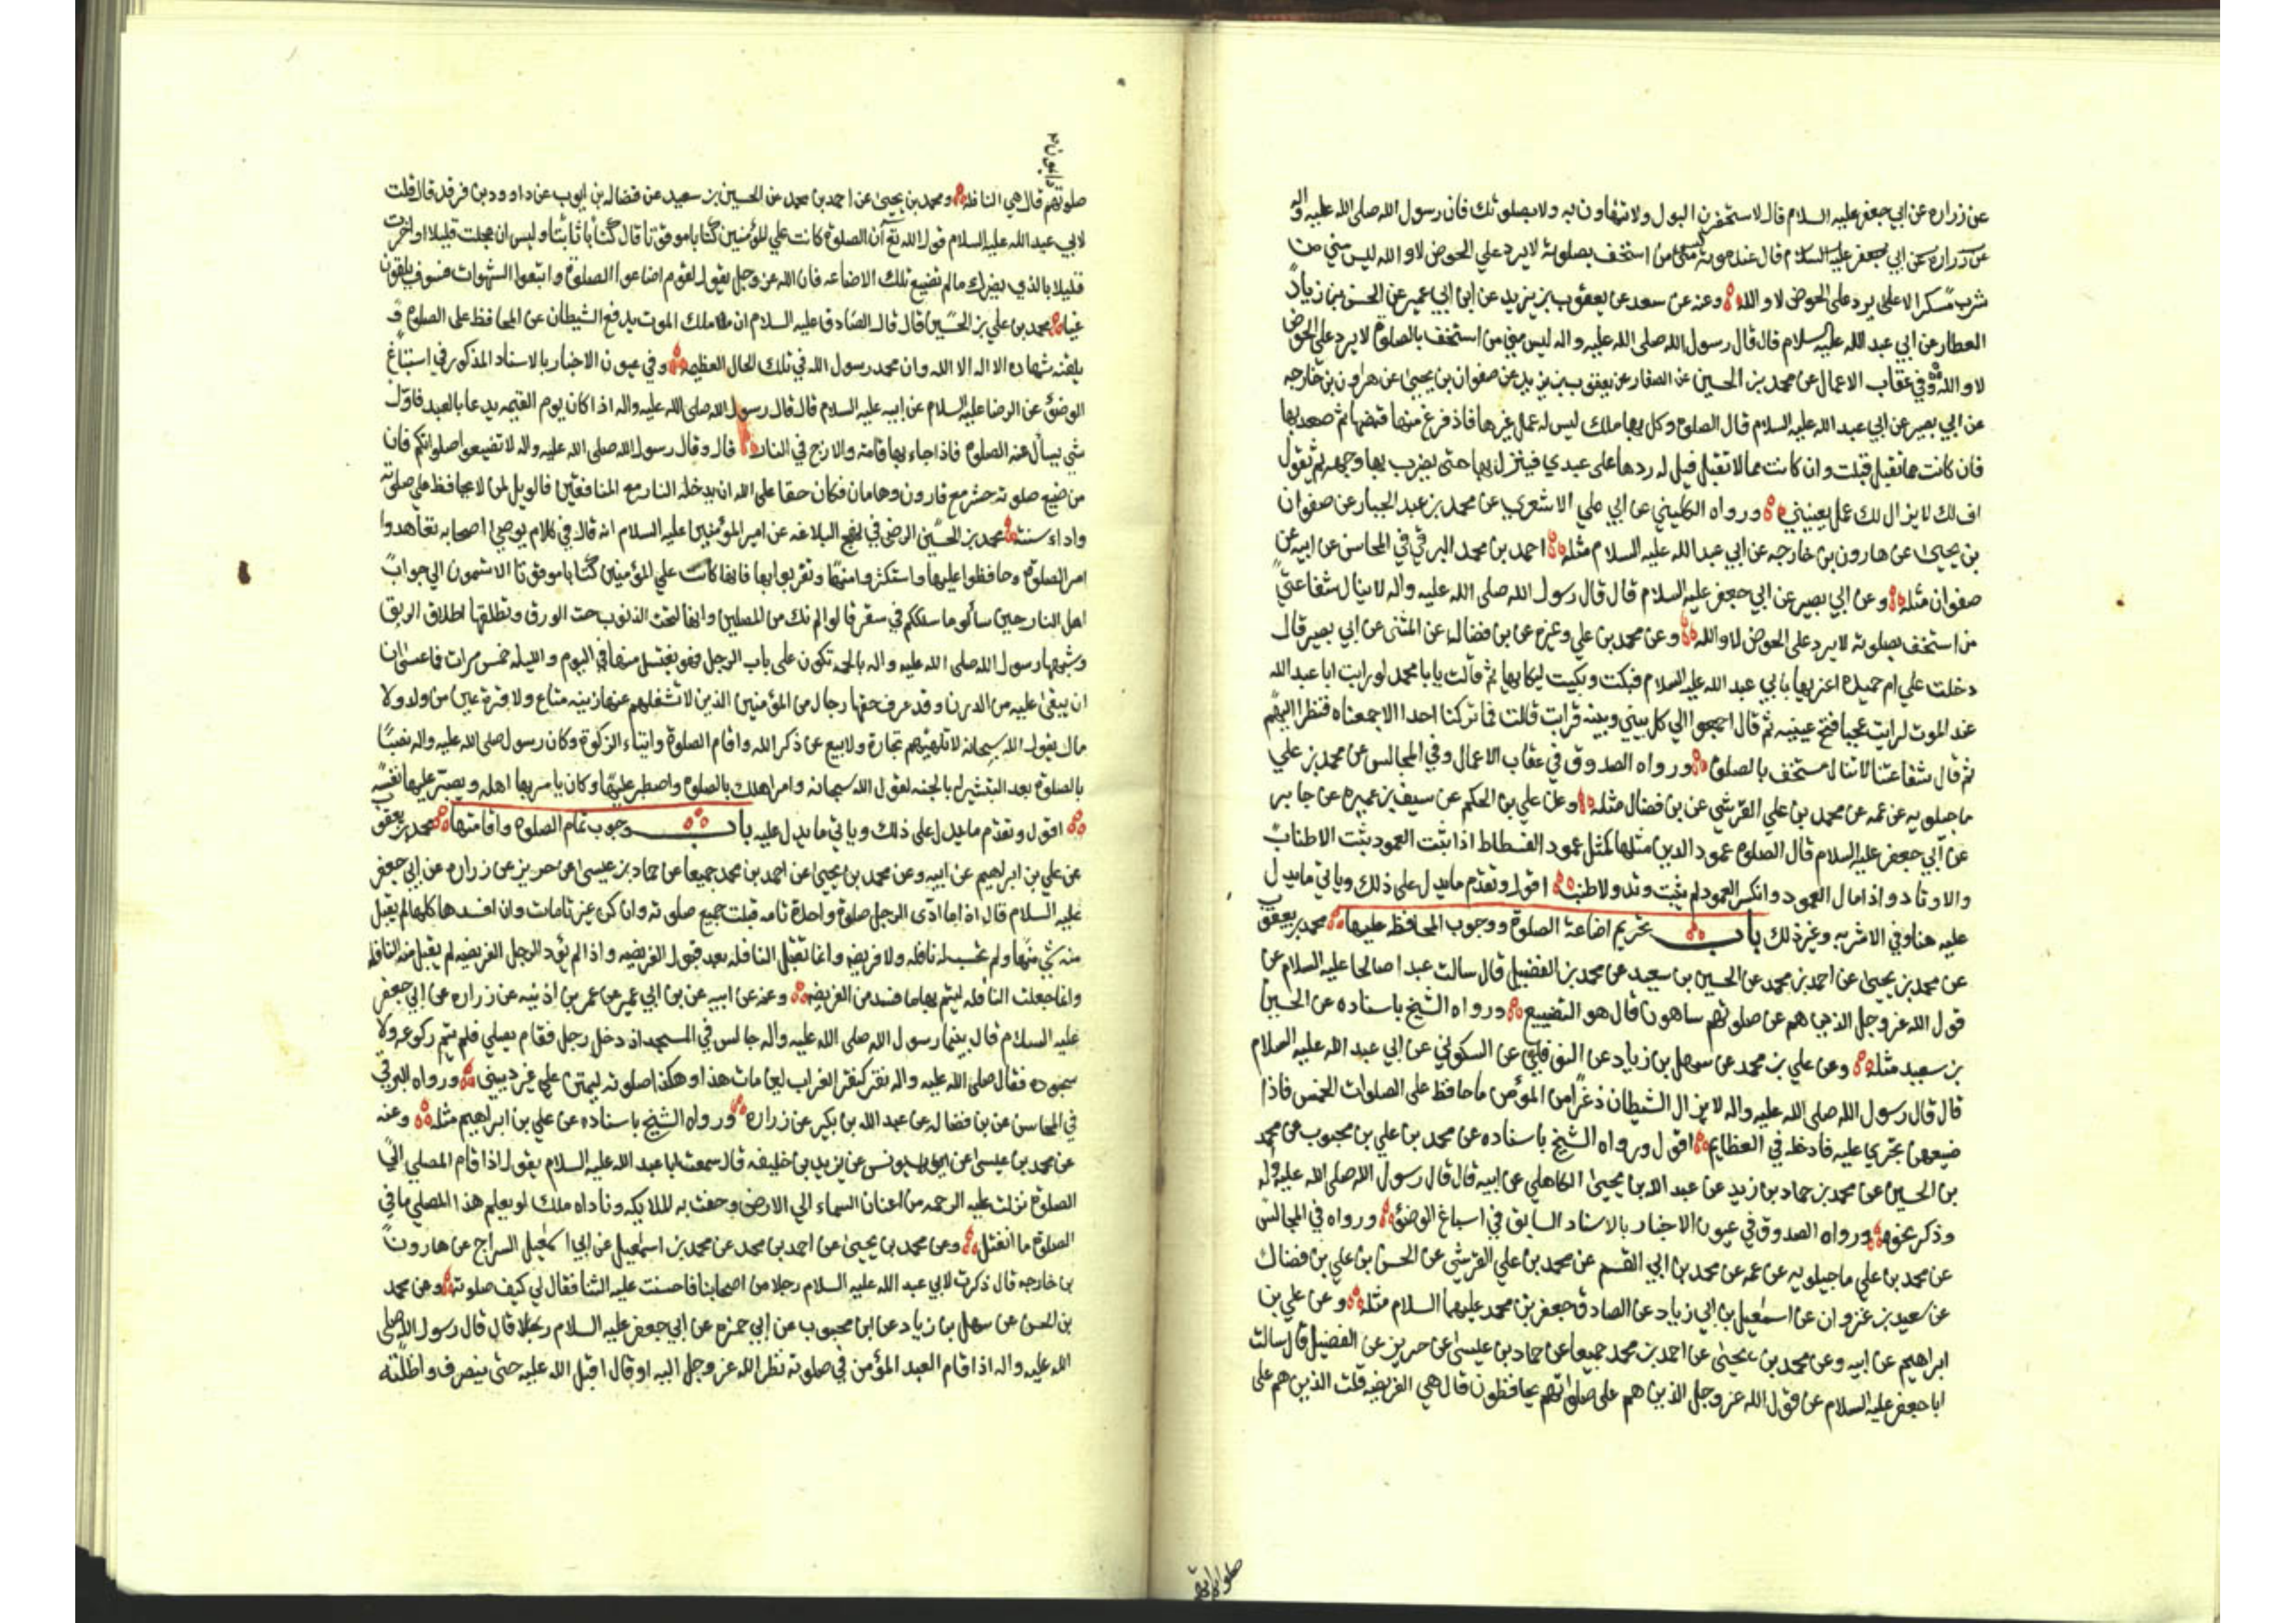 عن زراره عن ابي جعفر عليه السلام قال لا تستخفن البول ولا تتهاون به ولا بصلوتك فان رسول الله صلى الله عليه واله
قال عند موته ليس مني من استخف بصلوته لا يرد علي الحوض لا والله ليس مني من
شرب مسكرا لا يرد على الحوض لا والله وعنه عن سعد عن يعقوب بن يزيد عن ابن ابي عمير عن الحسن بن زياد
العطار عن ابي عبد الله عليه السلام قال قال رسول الله صلى الله عليه واله ليس مني من استخف بالصلوة لا يرد علي الحوض
لا والله وفي عقاب الاعمال عن محمد بن الحسين عن الصفار عن يعقوب بن يزيد عن صفوان بن يحيى عن هرون بن خارجه
عن ابي بصير عن ابي عبد الله عليه السلام قال الصلوة وكل بها ملك ليس له عمل غيرها فاذ فرغ منها قبضها ثم صعد بها
فان كانت مما تقبل قبلت وان كانت مما لا تقبل قيل له ردها على عبدي فينزل بها حتى يضرب بها وجهه ثم يقول
اف لك لا يزال لك عمل يعنيني ورواه الكليني عن ابي علي الاشعري عن محمد بن عبد الجبار عن صفوان
بن يحيى عن هارون بن خارجه عن ابي عبد الله عليه السلام مثله احمد بن محمد البرقي في المحاسن عن ابيه عن
صفوان مثله وعن ابي بصير عن ابي جعفر عليه السلام قال قال رسول الله صلى الله عليه واله لا ينال شفاعتي
من استخف بصلوته لا يرد على الحوض لا والله وعن محمد بن علي وغيره عن بن فضال عن المثنى عن ابي بصير قال
دخلت علي ام حميده اعزيها بابي عبد الله عليه السلام فبكت وبكيت لبكايها ثم قالت يا با محمد لو رايت ابا عبد الله
عند الموت لرايت عجبا فتح عينيه ثم قال اجمعوا الي كل بيني وبينه قرابت قالت فما تركنا احدا الا جمعناه فنظر اليهم
ثم قال شفاعتنا لا تنال مستخف بالصلوة ورواه الصدوق في عقاب الاعمال وفي المجالس عن محمد بن علي
ماجيلويه عن عمه عن محمد بن علي القرشي عن بن فضال مثله وعن علي بن الحكم عن سيف بن عميره عن جابر
عن ابي جعفر عليه السلام قال الصلوة عمود الدين مثلها كمثل عمود الفسطاط اذا ثبت العمود يثبت الاطناب
والاوتاد واذا مال العمود وانكسر العمود لم يثبت وتد ولا طنب اقول وتقدم ما يدل على ذلك وياتي ما يدل
عليه هنا وفي الاشربه وغير ذلك باب تحريم اضاعة الصلوة ووجوب المحافظه عليها محمد بن يعقوب
عن محمد بن يحيى عن احمد بن محمد عن الحسين بن سعيد عن محمد بن الفضيل قال سالت عبدا صالحا عليه السلام عن
قول الله عز وجل الذين هم عن صلوتهم ساهون قال هو التضييع ورواه الشيخ باسناده عن الحسين
بن سعيد مثله وعن علي بن محمد عن سهل بن زياد عن النوفلي عن السكوني عن ابي عبد الله عليه السلام
قال قال رسول الله صلى الله عليه واله لا يزال الشيطان ذعرا من المؤمن ما حافظ على الصلوات الخمس فاذا
ضيعهن تجرى عليه فادخله في العظايم اقول ورواه الشيخ باسناده عن محمد بن علي بن محبوب عن محمد
بن الحسين عن محمد بن حماد بن زيد عن عبد الله بن يحيى الكاهلي عن ابيه قال قال رسول الله صلى الله عليه واله
وذكر نحوه ورواه الصدوق في عيون الاخبار بالاسناد السابق في اسباغ الوضوء ورواه في المجالس
عن محمد بن علي ماجيلويه عن عمه عن محمد بن ابي القسم عن محمد بن علي القرشي عن الحسن بن علي بن فضال
عن سعيد بن غزوان عن اسمعيل بن ابي زياد عن الصادق جعفر بن محمد عليهما السلام مثله وعن علي بن
ابراهيم عن ابيه وعن محمد بن يحيى عن احمد بن محمد جميعا عن حماد بن عيسى عن حريز عن الفضيل قال سالت
ابا جعفر عليه السلام عن قول الله عز وجل الذين هم على صلواتهم يحافظون قال هي الفريضه قلت الذين هم على
صلوتهم دايمون قال هي النافله ومحمد بن يحيى عن احمد بن محمد عن الحسين بن سعيد عن فضاله بن ايوب عن داوود بن فرقد قال قلت
لابي عبد الله عليه السلام قول الله تع ان الصلوة كانت علي المؤمنين كتابا موقوتا قال كتابا ثابتا وليس ان عجلت قليلا او اخرت
قليلا بالذي يضرك ما لم تضيع تلك الاضاعه فان الله عز وجل يقول لقوم اضاعوا الصلوة واتبعوا الشهوات فسوف يلقون
غيا محمد بن علي بن الحسين قال قال الصادق عليه السلام ان ملك الموت يدفع الشيطان عن المحافظ على الصلوة و
يلقنه شهاده الا اله الا الله وان محمد رسول الله في تلك الحال العظيمه وفي عيون الاخبار بالاسناد المذكور في اسباغ
الوضوء عن الرضا عليه السلام عن ابيه عليه السلام قال قال رسول الله صلى الله عليه واله اذا كان يوم القيمه يدعا بالعبد فاول
شي يسأل عنه الصلوة فاذا جاء بها تامه والا زج في النار قال وقال رسول الله صلى الله عليه واله لا تضيعوا صلواتكم فان
من ضيع صلوته حشر مع قارون وهامان فكان حقا على الله ان يدخله النار مع المنافقين فالويل لمن لا يحافظ علي صلوته
واداء سنته محمد بن الحسين الرضي في نهج البلاغه عن امير المؤمنين عليه السلام انه قال في كلام يوصي اصحابه تعاهدوا
امر الصلوة وحافظوا عليها واستكثروا منها وتقربوا بها فانها كانت علي المؤمنين كتابا موقوتا الا تسمعون الي جواب
اهل النار حين سألوا ما سلككم في سقر قالوا لم نك من المصلين وانها لتحت الذنوب حت الورق وتطلقها اطلاق الربق
وشبهها رسول الله صلى الله عليه واله بالحمه تكون على باب الرجل فهو يغتسل منها في اليوم والليله خمس مرات فما عسى ان
ان يبقى عليه من الدرن وقد عرف حقها رجال من المؤمنين الذين لا تشغلهم عنها زينه متاع ولا قرة عين من ولد ولا
مال يقول الله سبحانه لا تلهيهم تجارة ولا بيع عن ذكر الله واقام الصلوة وايتاء الزكوة وكان رسول صلى الله عليه واله نصبا
بالصلوة بعد التبشير له بالجنه لقول الله سبحانه وامر اهلك بالصلوة واصطبر عليها وكان يامر بها اهله ويصبر عليها نفسه
اقول وتقدم ما يدل على ذلك وياتي ما يدل عليه باب وجوب تمام الصلوة واقامتها محمد بن يعقوب
عن علي بن ابراهيم عن ابيه وعن محمد بن يحيى عن احمد بن محمد جميعا عن حماد بن عيسى عن حريز عن زراره عن ابي جعفر
عليه السلام قال اذا ما ادى الرجل صلوة واحدة تامه قبلت جميع صلوته وان كن غير تامات وان افسدها كلها لم يقبل
منه شي منها ولم تحسب له نافله ولا فريضه وانما تقبل النافله بعد قبول الفريضه واذا لم يؤد الرجل الفريضه لم يقبل منه النافله
وانما جعلت النافله ليتم بها ما فسد من الفريضه وعنه عن ابيه عن بن ابي عمير عن عمر بن اذينه عن زراره عن ابي جعفر
عليه السلام قال بينما رسول الله صلى الله عليه واله جالس في المسجد اذ دخل رجل فقام يصلي فلم يتم ركوعه ولا
سجوده فقال صلى الله عليه واله نقر كنقر الغراب لين مات هذا وهكذا صلوته ليموتن علي غير ديني ورواه البرقي
في المحاسن عن بن فضال عن عبد الله بن بكير عن زراره ورواه الشيخ باسناده عن علي بن ابراهيم مثله وعنه
عن محمد بن عيسى عن يونس عن يزيد بن خليفه قال سمعت ابا عبد الله عليه السلام يقول اذا قام المصلي الي
الصلوة نزلت عليه الرحمه من اعنان السماء الي الارض وحفت به الملايكه وناداه ملك لو يعلم هذا المصلي ما في
الصلوة ما انفتل وعن محمد بن يحيى عن احمد بن محمد عن محمد بن اسمعيل عن ابي اسمعيل السراج عن هارون
بن خارجه قال ذكرت لابي عبد الله عليه السلام رجلا من اصحابنا فاحسنت عليه الثنا فقال لي كيف صلوته وعن محمد
بن الحسن عن سهل بن زياد عن ابن محبوب عن ابي حمزه عن ابي جعفر عليه السلام قال قال رسول الله صلى
الله عليه واله اذا قام العبد المؤمن في صلوته نظر الله عز وجل اليه او قال اقبل الله عليه حتى ينصرف واظلته